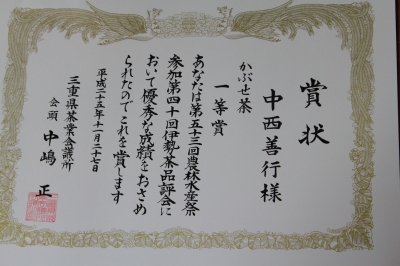 賞状
中西善行様
かぶせ茶
一等賞
あなたは第五十三回農林水産祭
参加第四十回伊勢茶品評会に
おいて優秀な成績をおさめ
られたのでこれを賞します
平成二十五年十一月二十七日
三重県茶業会議所
会頭 中嶋 正